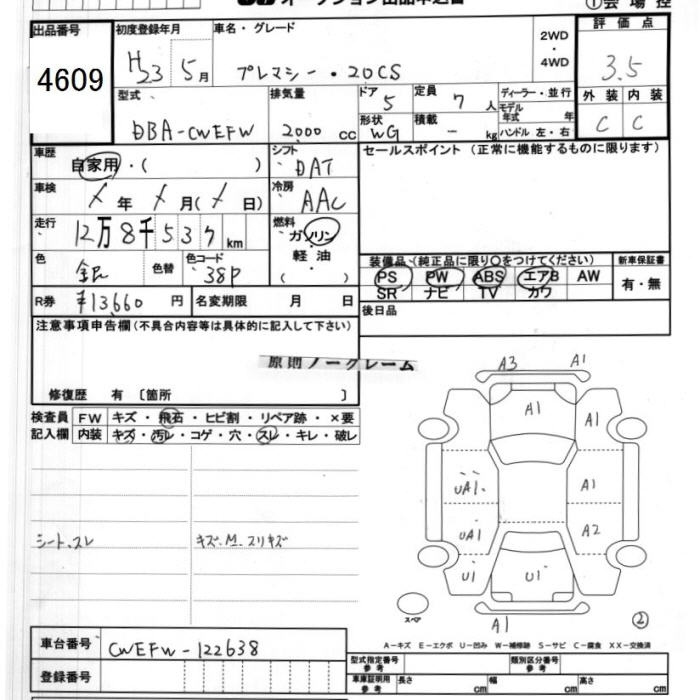 オークション出品申込書
①会場控
出品番号
4609
初度登録年月
H23 5月
車名・グレード
プレマシー・20CS
2WD
・
4WD
評価点
3.5
外装 内装
C C
型式
DBA-CWEFW
排気量
2000 cc
ドア 5
形状 WG
定員 7 人
積載 - kg
ディーラー・並行
モデル年式 年
ハンドル 左・右
車歴
自家用・( )
シフト DAT
冷房 AAC
セールスポイント(正常に機能するものに限ります)
車検
年 月( 日)
走行
12万8千537km
燃料
ガソリン・
軽油・
( )
色
銀
色替
色コード
38P
R券 ¥13,660 円
名変期限 月 日
装備品(純正品に限り○をつけてください)
PS PW ABS エアB AW
SR ナビ TV カワ
新車保証書
有・無
後日品
注意事項申告欄(不具合内容等は具体的に記入して下さい)
原則ノークレーム
修復歴 有〔箇所 〕
検査員記入欄
FW キズ・飛石・ヒビ割・リペア跡・×要
内装 キズ・汚レ・コゲ・穴・スレ・キレ・破レ
シート、スレ
キズ、M、スリキズ
A3 A1
A1 A1
UA1 A1
UA1 A2
U1 U1
A1
スペア
②
A-キズ E-エクボ U-凹み W-補修跡 S-サビ C-腐食 XX-交換済
車台番号 CWEFW-122638
登録番号
型式指定番号 参考
類別区分番号 参考
車庫証明用 参考
長さ cm 幅 cm 高さ cm